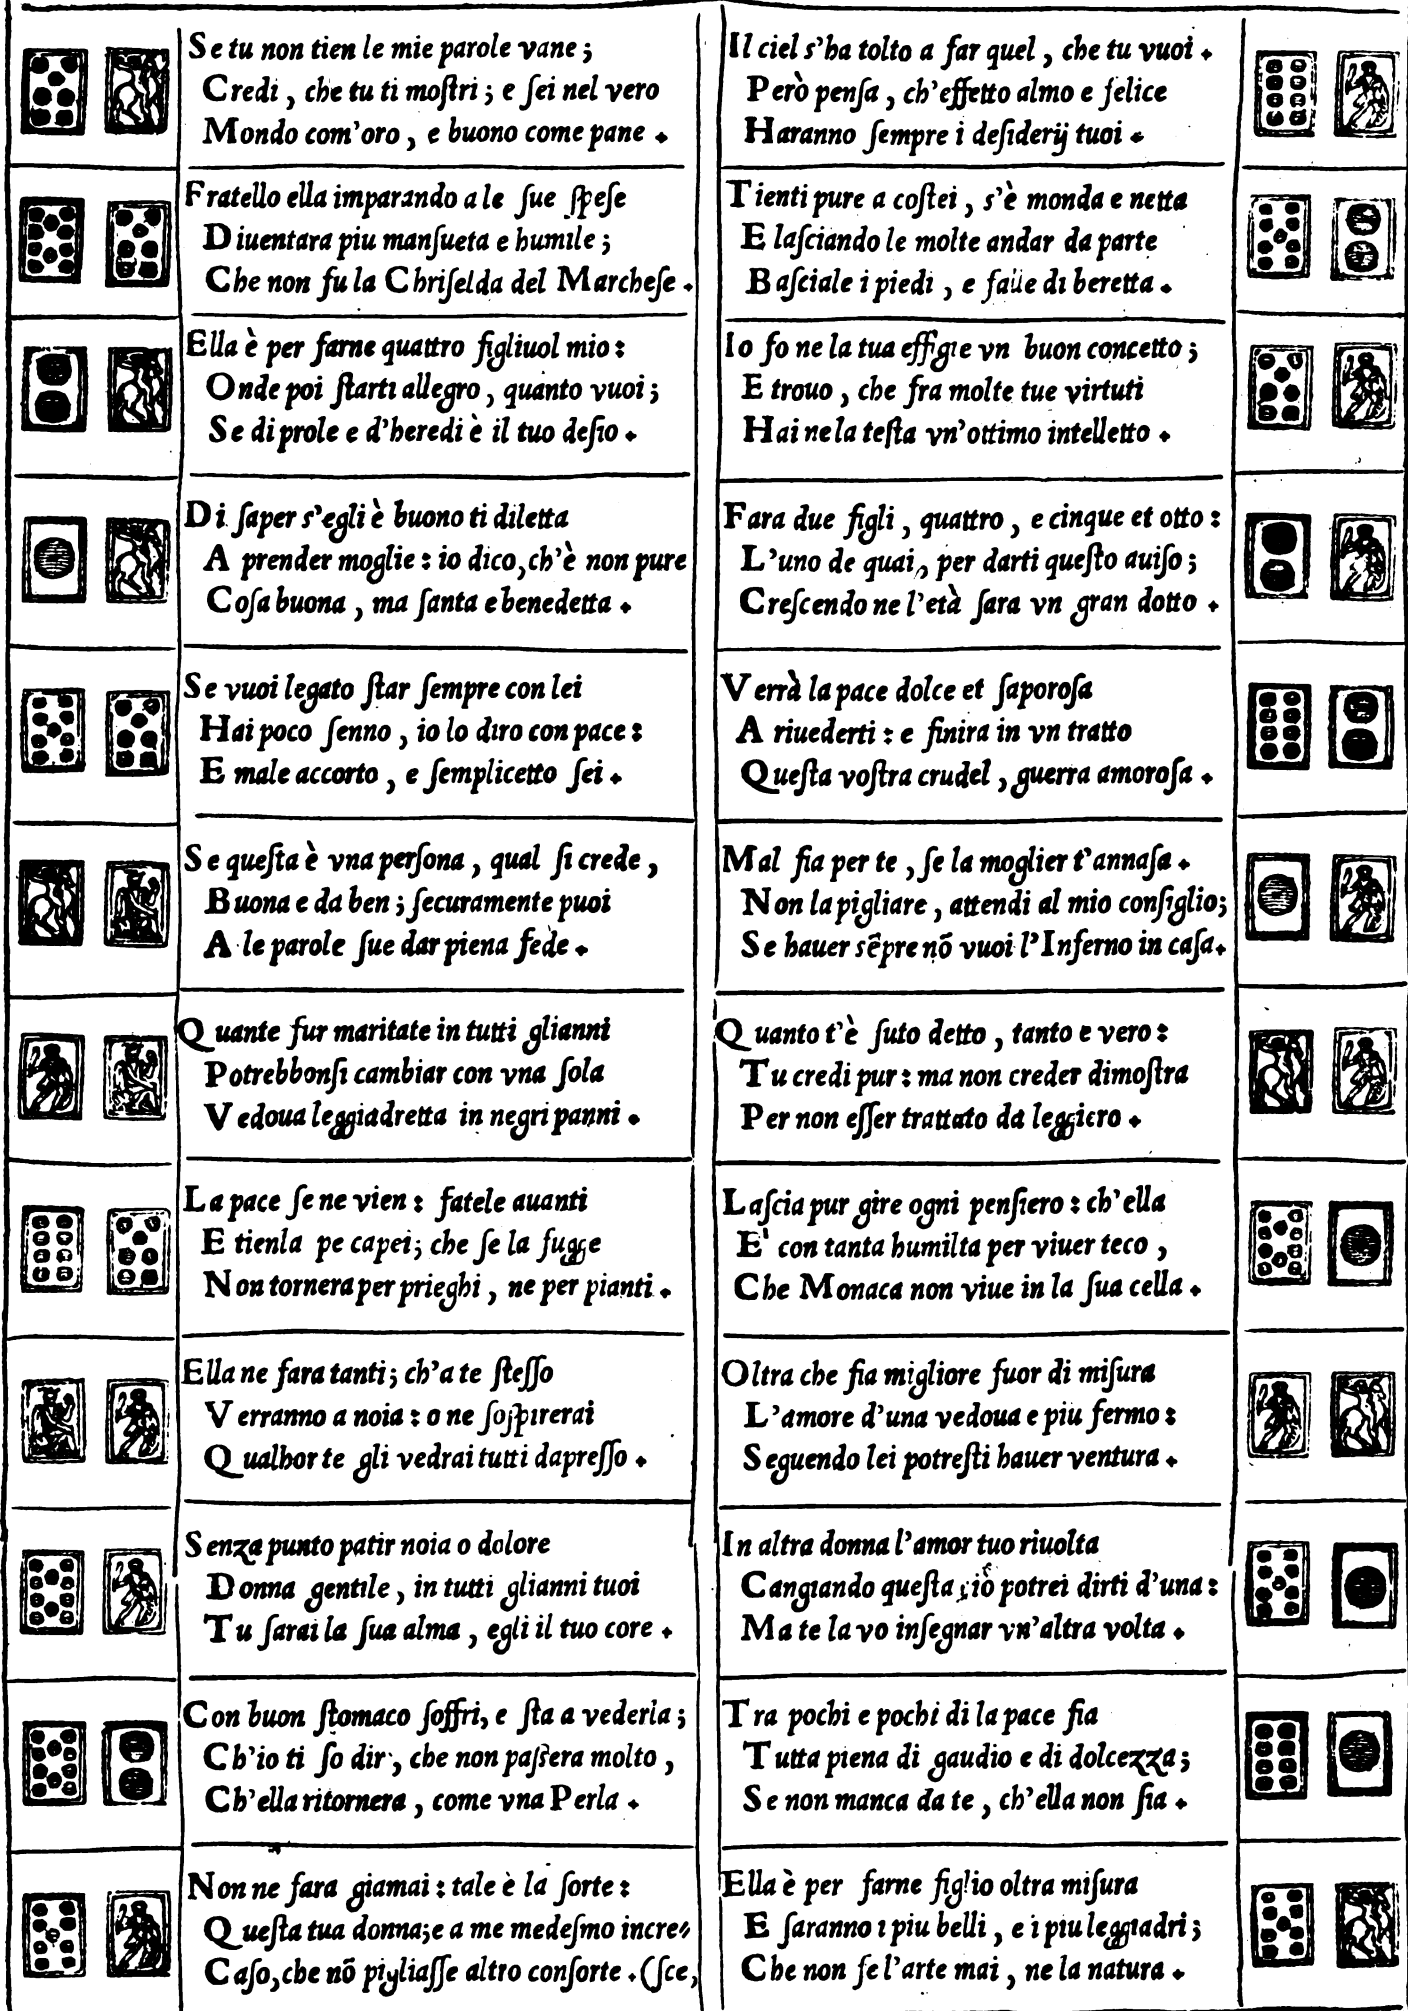 Se tu non tien le mie parole vane;
Credi, che tu ti moſtri; e ſei nel vero
Mondo com'oro, e buono come pane.
Fratello ella imparando a le ſue ſpeſe
Diuentara piu manſueta e humile;
Che non fu la Chriſelda del Marcheſe.
Ella è per farne quattro figliuol mio:
Onde poi ſtarti allegro, quanto vuoi;
Se di prole e d'heredi è il tuo deſio.
Di ſaper s'egli è buono ti diletta
A prender moglie: io dico, ch'è non pure
Coſa buona, ma ſanta e benedetta.
Se vuoi legato ſtar ſempre con lei
Hai poco ſenno, io lo diro con pace:
E male accorto, e ſemplicetto ſei.
Se queſta è vna perſona, qual ſi crede,
Buona e da ben; ſecuramente puoi
A le parole ſue dar piena fede.
Quante fur maritate in tutti glianni
Potrebbonſi cambiar con vna ſola
Vedoua leggiadretta in negri panni.
La pace ſe ne vien: fatele auanti
E tienla pe capei; che ſe la fugge
Non tornera per prieghi, ne per pianti.
Ella ne fara tanti; ch'a te ſteſſo
Verranno a noia: o ne ſoſpirerai
Qualhor te gli vedrai tutti dapreſſo.
Senza punto patir noia o dolore
Donna gentile, in tutti glianni tuoi
Tu ſarai la ſua alma, egli il tuo core.
Con buon ſtomaco ſoffri, e ſta a vederla;
Ch'io ti ſo dir, che non paſsera molto,
Ch'ella ritornera, come vna Perla.
Non ne fara giamai: tale è la ſorte:
Queſta tua donna; e a me medeſmo incre-
Caſo, che nō pigliaſſe altro conſorte. (ſce,
Il ciel s'ha tolto a far quel, che tu vuoi.
Però penſa, ch'effetto almo e felice
Haranno ſempre i deſiderij tuoi.
Tienti pure a coſtei, s'è monda e netta
E laſciando le molte andar da parte
Baſciale i piedi, e falle di beretta.
Io fo ne la tua effigie vn buon concetto;
E trouo, che fra molte tue virtuti
Hai ne la teſta vn'ottimo intelletto.
Fara due figli, quattro, e cinque et otto:
L'uno de quai, per darti queſto auiſo;
Creſcendo ne l'età ſara vn gran dotto.
Verrà la pace dolce et ſaporoſa
A riuederti: e finira in vn tratto
Queſta voſtra crudel, guerra amoroſa.
Mal fia per te, ſe la moglier t'annaſa.
Non la pigliare, attendi al mio conſiglio;
Se hauer sēpre nō vuoi l'Inferno in caſa.
Quanto t'è ſuto detto, tanto e vero:
Tu credi pur: ma non creder dimoſtra
Per non eſſer trattato da leggiero.
Laſcia pur gire ogni penſiero: ch'ella
E' con tanta humilta per viuer teco,
Che Monaca non viue in la ſua cella.
Oltra che fia migliore fuor di miſura
L'amore d'una vedoua e piu fermo:
Seguendo lei potreſti hauer ventura.
In altra donna l'amor tuo riuolta
Cangiando queſta; iò potrei dirti d'una:
Ma te la vo inſegnar vn'altra volta.
Tra pochi e pochi di la pace fia
Tutta piena di gaudio e di dolcezza;
Se non manca da te, ch'ella non ſia.
Ella è per farne figlio oltra miſura
E ſaranno i piu belli, e i piu leggiadri;
Che non fe l'arte mai, ne la natura.